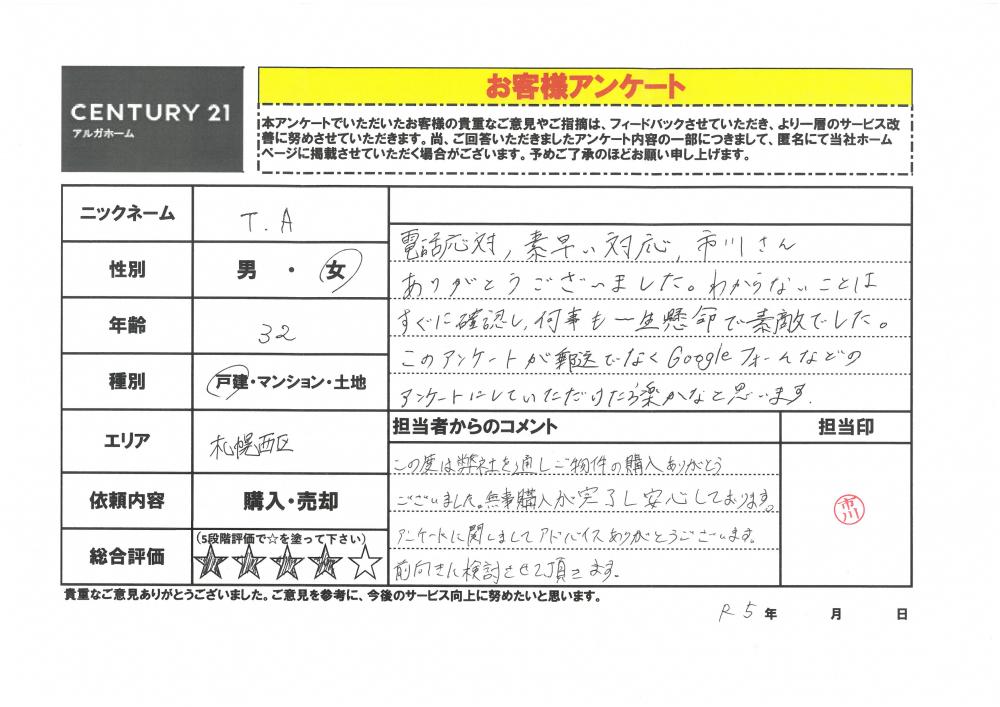 CENTURY 21
アルガホーム
お客様アンケート
本アンケートでいただいたお客様の貴重なご意見やご指摘は、フィードバックさせていただき、より一層のサービス改
善に努めさせていただきます。尚、ご回答いただきましたアンケート内容の一部につきまして、匿名にて当社ホーム
ページに掲載させていただく場合がございます。予めご了承のほどお願い申し上げます。
ニックネーム
T.A
性別
男・女
年齢
32
種別
戸建・マンション・土地
エリア
札幌西区
依頼内容
購入・売却
総合評価
(5段階評価で☆を塗って下さい)
★★★★☆
電話応対, 素早い対応, 市川さん
ありがとうございました。わからないことは
すぐに確認し、何事も一生懸命で素敵でした。
このアンケートが郵送でなくGoogleフォームなどの
アンケートにしていただけたら楽かなと思います.
担当者からのコメント
この度は弊社を通しご物件の購入ありがとう
ございました。無事購入が完了し安心しております。
アンケートに関しましてアドバイスありがとうございます。
前向きに検討させて頂きます.
担当印
市川
貴重なご意見ありがとうございました。ご意見を参考に、今後のサービス向上に努めたいと思います。
R5年 月 日